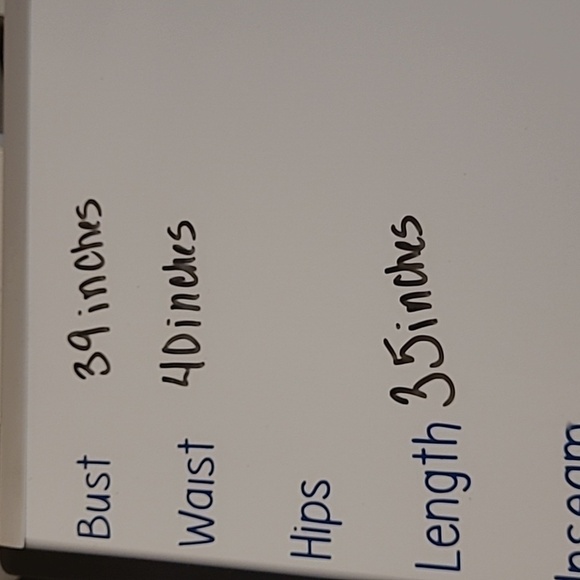 Bust 39 inches
Waist 40 inches
Hips
Length 35 inches
Inseam